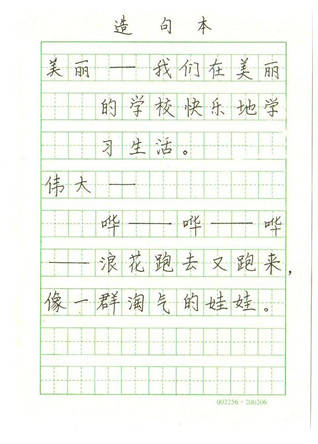 造句本
美丽——我们在美丽
的学校快乐地学
习生活。
伟大——
哗——哗——哗
——浪花跑去又跑来，
像一群淘气的娃娃。
002256·200206